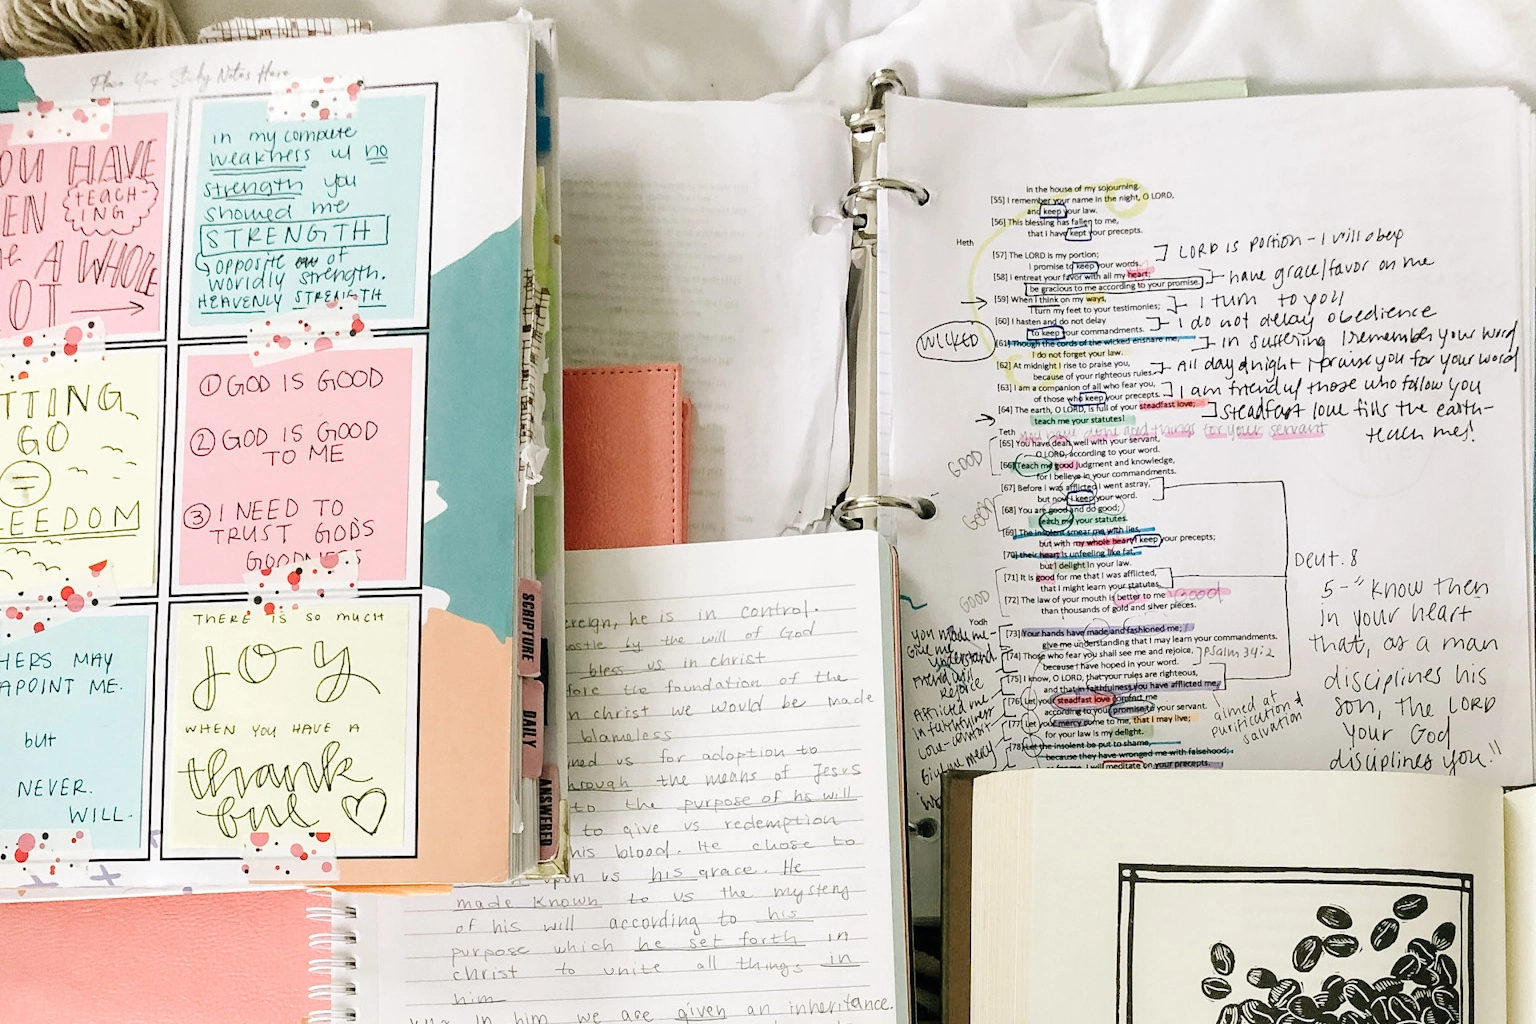 Place Your Study Notes Here
YOU HAVE
TEACH-
ING
A WHOLE
LOT →
in my complete
weakness w/ no
strength you
showed me
STRENGTH
opposite of
worldly strength.
HEAVENLY STRENGTH
GO
=
FREEDOM
① GOD IS GOOD
② GOD IS GOOD
TO ME
③ I NEED TO
TRUST GOD'S
GOODNESS
MAY
ME.
but
NEVER.
WILL.
THERE IS SO MUCH
JOY
WHEN YOU HAVE A
thankful
SCRIPTURE
DAILY
ANSWERED
he is in control.
by the will of God
bless us in christ
the foundation of the
christ we would be made
blameless
us for adoption to
through the means of Jesus
to the purpose of his will
to give us redemption
his blood. He chose to
upon us his grace. He
made known to us the mystery
of his will according to his
purpose which he set forth in
christ to unite all things in
him
In him we are given an inheritance.
In the house of my sojourning.
[55] I remember your name in the night, O LORD,
and keep your law.
[56] This blessing has fallen to me,
that I have kept your precepts.
Heth
[57] The LORD is my portion;
I promise to keep your words.
[58] I entreat your favor with all my heart;
be gracious to me according to your promise.
[59] When I think on my ways,
I turn my feet to your testimonies;
[60] I hasten and do not delay
to keep your commandments.
[61] Though the cords of the wicked ensnare me,
I do not forget your law.
[62] At midnight I rise to praise you,
because of your righteous rules.
[63] I am a companion of all who fear you,
of those who keep your precepts.
[64] The earth, O LORD, is full of your steadfast love;
teach me your statutes!
Teth
[65] You have dealt well with your servant,
O LORD, according to your word.
[66] Teach me good judgment and knowledge,
for I believe in your commandments.
[67] Before I was afflicted I went astray,
but now I keep your word.
[68] You are good and do good;
teach me your statutes.
[69] The insolent smear me with lies,
but with my whole heart I keep your precepts;
[70] their heart is unfeeling like fat,
but I delight in your law.
[71] It is good for me that I was afflicted,
that I might learn your statutes.
[72] The law of your mouth is better to me
than thousands of gold and silver pieces.
Yodh
[73] Your hands have made and fashioned me;
give me understanding that I may learn your commandments.
[74] Those who fear you shall see me and rejoice,
because I have hoped in your word.
[75] I know, O LORD, that your rules are righteous,
and that in faithfulness you have afflicted me.
[76] Let your steadfast love comfort me
according to your promise to your servant.
[77] Let your mercy come to me, that I may live;
for your law is my delight.
[78] Let the insolent be put to shame,
because they have wronged me with falsehood;
I will meditate on your precepts.
WICKED
LORD is portion - I will obey
have grace/favor on me
I turn to you
I do not delay obedience
in suffering I remember your word
All day & night I praise you for your word
I am friend of those who follow you
Steadfast love fills the earth -
teach me!
You have done good things for your servant
GOOD
GOOD
GOOD
Good
you made me -
Give me
understand.
rejoice
Afflicted me
in faithfulness
Love - comfort
Give me mercy
psalm 34:2
aimed at
purification &
salvation
Deut. 8
5 - "Know then
in your heart
that, as a man
disciplines his
son, the LORD
your God
disciplines you!!